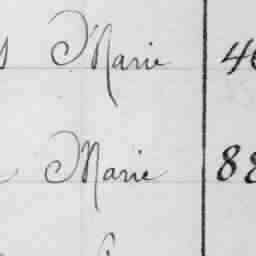 Marie
Marie 88